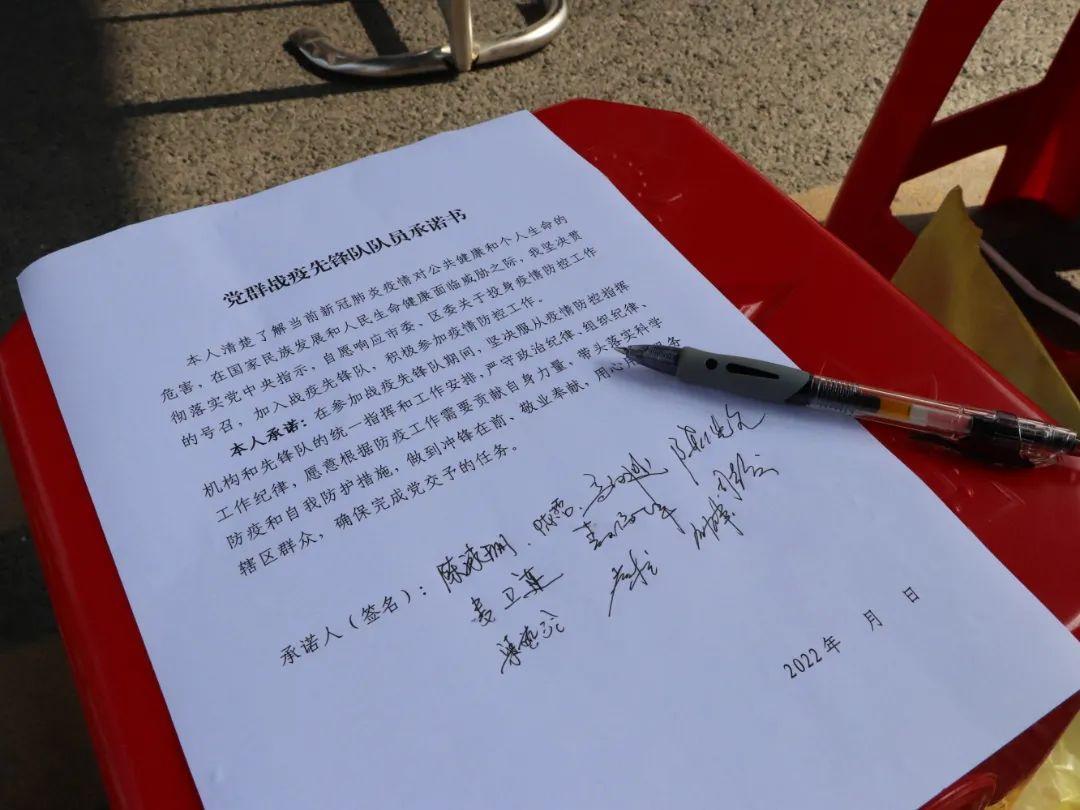 党群战疫先锋队队员承诺书
本人清楚了解当前新冠肺炎疫情对公共健康和个人生命的
危害,在国家民族发展和人民生命健康面临威胁之际,我坚决贯
彻落实党中央指示,自愿响应市委、区委关于投身疫情防控工作
的号召,加入战疫先锋队,积极参加疫情防控工作。
本人承诺:在参加战疫先锋队期间,坚决服从疫情防控指挥
机构和先锋队的统一指挥和工作安排,严守政治纪律、组织纪律、
工作纪律,愿意根据防疫工作需要贡献自身力量,带头落实科学
防疫和自我防护措施,做到冲锋在前、敬业奉献,用心 务
辖区群众,确保完成党交予的任务。
承诺人(签名):
2022年 月 日